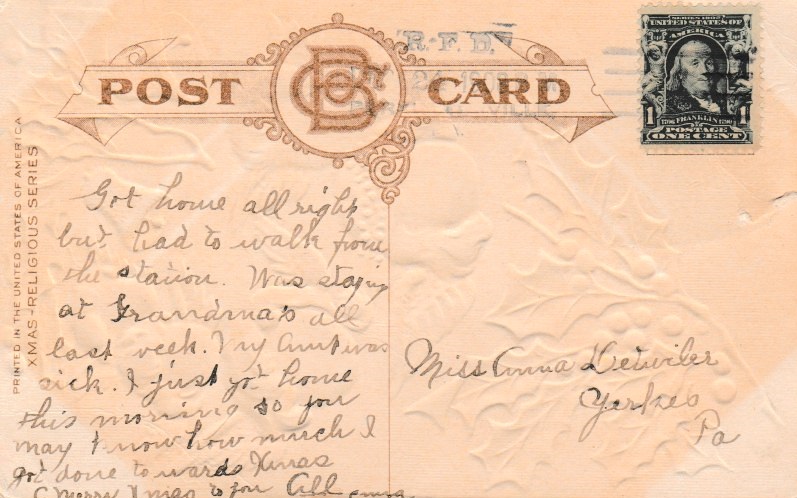 POST CARD
R.F.D.
SERIES 1902
UNITED STATES OF
AMERICA
1 FRANKLIN 1
POSTAGE
ONE CENT
PRINTED IN THE UNITED STATES OF AMERICA
XMAS-RELIGIOUS SERIES
Got home all right
but had to walk from
the station. Was staying
at Grandma's all
last week. My Aunt was
sick. I just got home
this morning so you
may know how much I
got done towards Xmas
Merry Xmas to you All
Miss Anna Detwiler
Yerkes
Pa